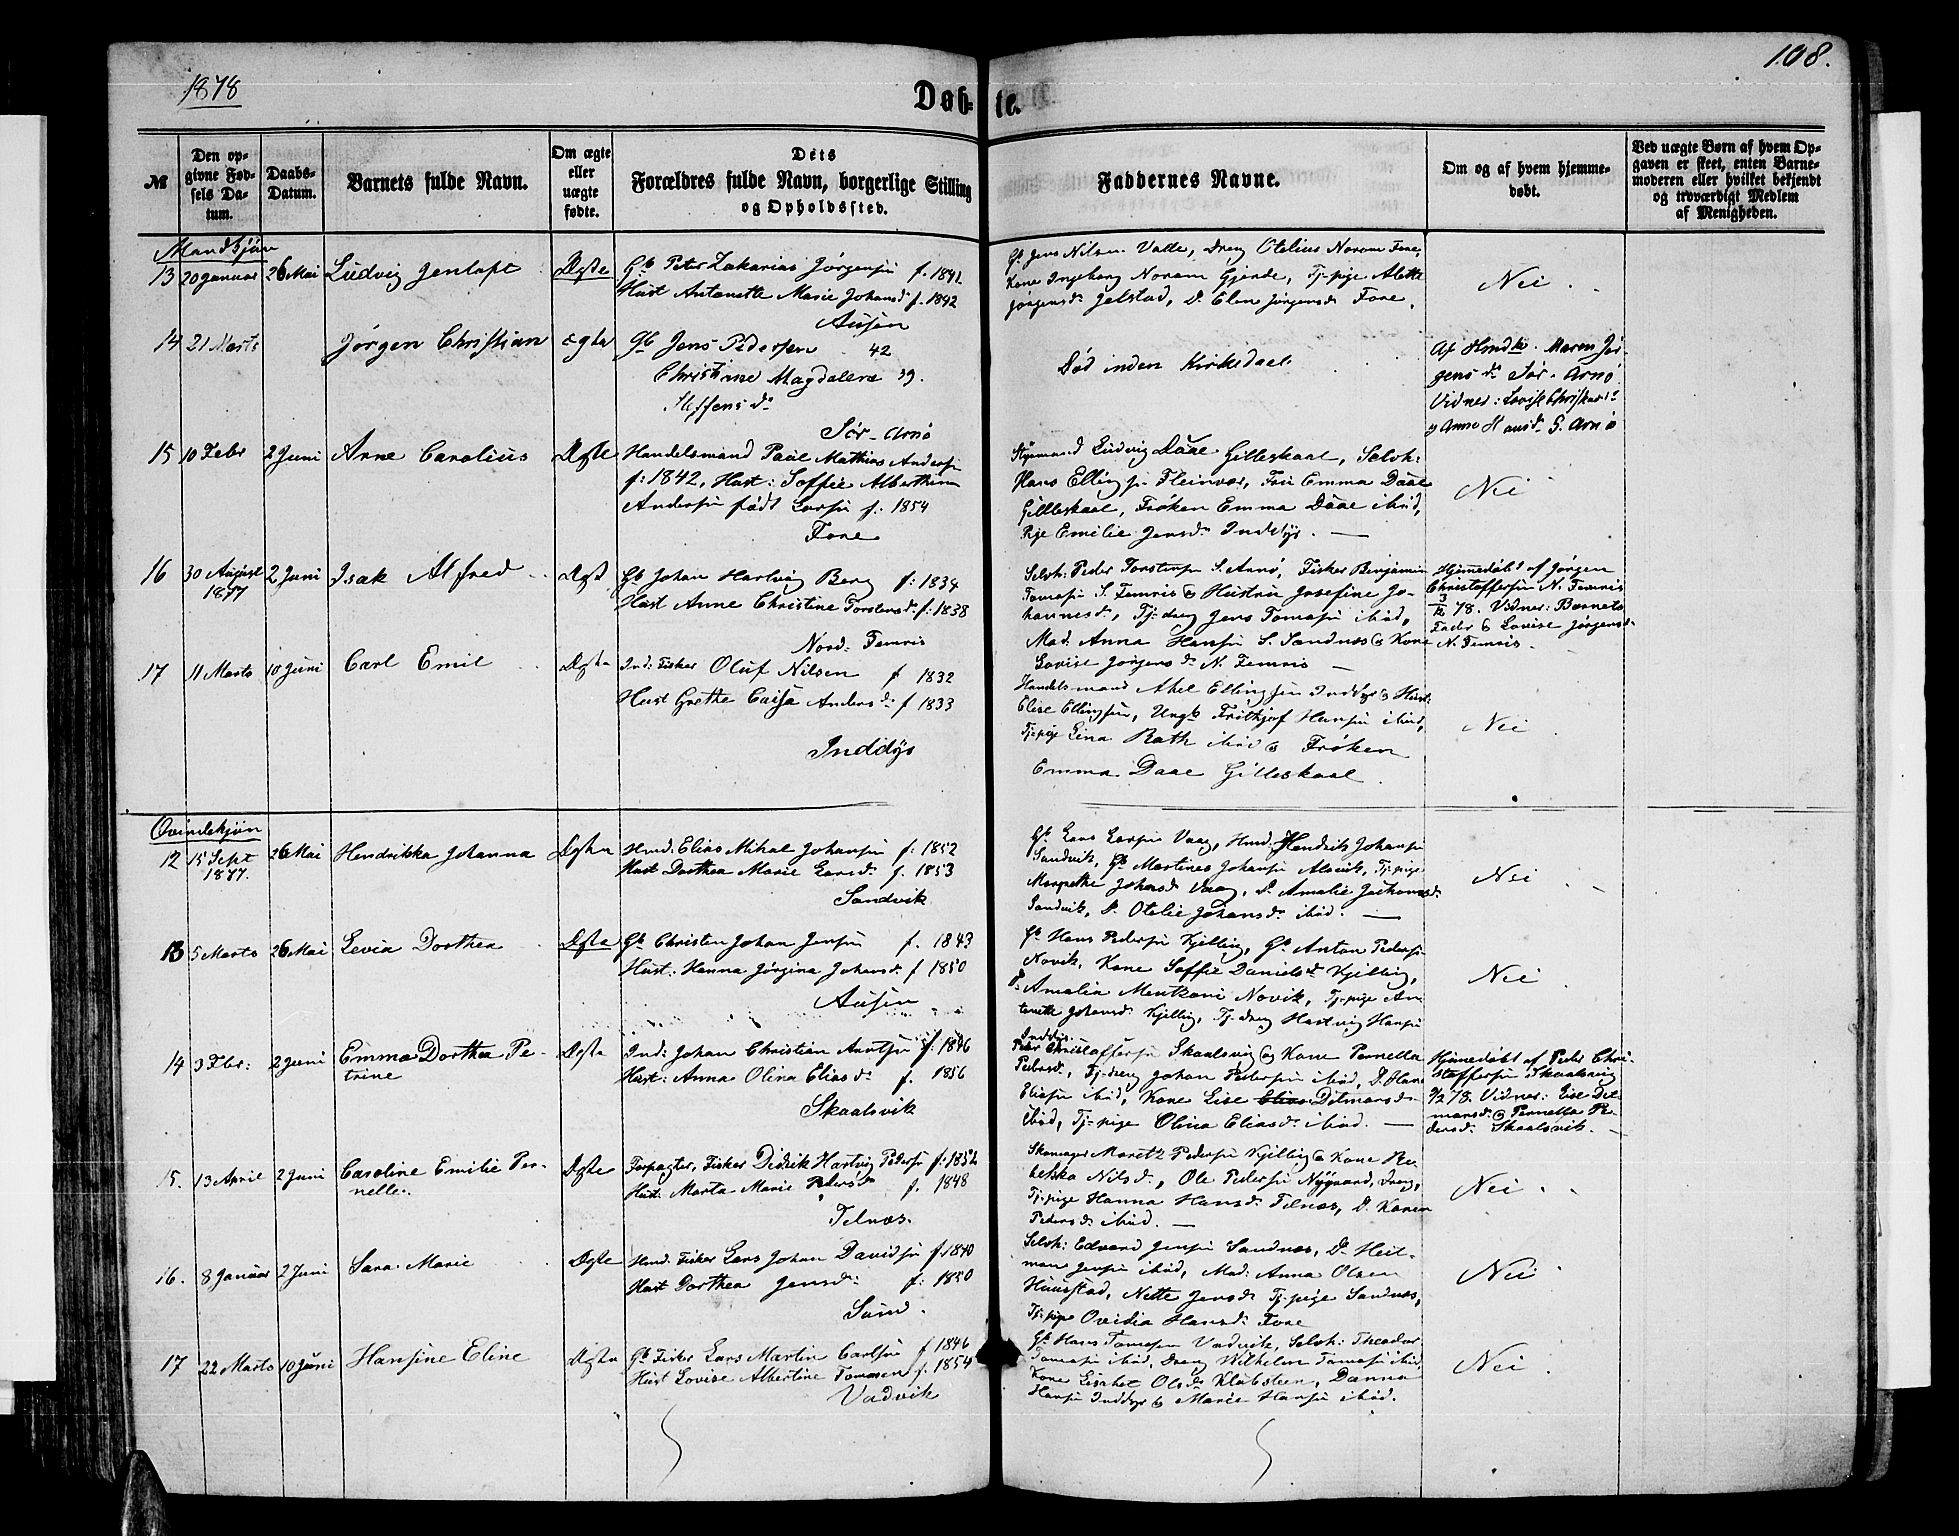 1878
108.
Døbte.
№
Den opgivne Fødsels Datum.
Daabs-Datum.
Barnets fulde Navn.
Om ægte eller uægte fødte.
Dets Forældres fulde Navn, borgerlige Stilling og Opholdssted.
Faddernes Navne.
Om og af hvem hjemmedøbt.
Ved uægte Børn af hvem Opgaven er skeet, enten Barnemoderen eller hvilket bekjendt og troværdigt Medlem af Menigheden.
Mandkjøn
13 20 Januar 26 Mai Ludvig Jentoft Ægte Gb Peter Zakarias Jørgensen f. 1841
Hust Antonette Marie Johansd f. 1842
Ausen
Gb Jens Nilsen Valle, Dreng Otelius Norum Fore,
Kone Ingeborg Norum Gjerde, Tj-pige Alette
Jørgensd. Jelstad, D. Elen Jørgensd. Fore.
Nei.
14 21 Marts Jørgen Christian ægte Gb Jens Pedersen 42
Christine Magdalena 39.
Steffensd.
Sør-Arnø
Død inden Kirkedaab.
Af Hmdk. Maren Jør-
gensd. Sør-Arnø
Vidner: Lovise
og Anna Hansd. S. Arnø
15 10 Febr 2 Juni Arne Carolius Ægte Handelsmand Paul Mathias Andersen
f: 1842, Hust: Soffie Alberthine
Andersen født Larsen f: 1854
Fore
Styrmand Ludvig Daae Gilleskaal, Selvh:
Hans Ellingsen Fleinvær, Fru Emma Daae
Gilleskaal, Frøken Emma Daae ibid,
Pige Emilie Jensd. Inddyr.
Nei
16 30 August 1877 2 Juni Isak Alfred Ægt Gb Johan Hartvig Berg f: 1834
Hust Anne Christine Torstensd. f: 1838
Nord-Femris
Selvh: Peder Torstensen S. Arnø, Fisker Benjamin
Tomasen S. Femris & Hustru Josefine Jo-
hannesd., Tj-dreng Jens Tomasen ibid,
Mad. Anna Hansen S. Sandnæs & Kone
Lovise Jørgensd. N. Femris
Hjemmedøbt af Jørgen
Christoffersen N. Femris
78. Vidner: Barnets
Fader & Lovise Jørgensd.
N. Femris.
17 11 Marts 10 Juni Carl Emil Ægte Ind: Fisker Oluf Nilsen f 1832
Hust Grethe Caisa Andersd: f 1833
Inddyr
Handelsmand Axel Ellingsen Inddyr & Hust:
Elise Ellingsen, Ungk Frithjof Hansen ibid,
Tj-pige Lina Rath ibid & Frøken
Emma Daae Gilleskaal.
Nei
Qvindekjøn
12 15 Sept 1877. 26 Mai Hendrikka Johanna Ægte Hmd. Elias Mikal Johansen f: 1852
Hust Dorthea Marie Larsd. f. 1853
Sandvik
Gb Lars Larsen Vaag, Hmd. Hendrik Johansen
Sandvik, Gb Martines Johansen Alsvik, Tj-pige
Margrethe Johansd. Vaag, D. Amalie Joakimsd.
Sandvik, D. Otelie Johansd. ibid.
Nei
13 5 Marts 26 Mai Levia Dorthea Ægte Gb Christen Johan Jensen f. 1843
Hust: Hanna Jørgina Johansd. f 1850
Ausen
Gb Hans Pedersen Kjelling, Gb Anton Pedersen
Novik, Kone Soffie Danielsd. Kjelling,
D. Amalia Mentzoni Novik, Tj-pige An-
tonette Johansd. Kjelling, Tj-dreng Hartvig Hansen
Inddyr.
Nei
14 3 Febr: 2 Juni Emma Dorthea Pe-
trine Ægte Ind: Johan Christian Arntsen f. 1846
Hust: Anna Olina Eliasd. f. 1856
Skaalsvik
Peter Christoffersen Skaalsvig & Kone Pernella
Pedersd., Tj-dreng Johan Pedersen ibid, D. Hans
Eliasen ibid, Kone Lise Elias Ditmansd.
ibid, Tj-pige Olina Eliasd. ibid.
Hjemmedøbt af Peder Chri-
stoffersen Skaalsvig
78. Vidner: Lise Dit-
mansd. & Pernella Pe-
dersd. Skaalsvik.
15. 13 April 2 Juni Caroline Emilie Per-
nelle. Ægte Forpagter, Fisker Didrik Hartvig Pedersen f: 1852
Hust: Marta Marie Pedersd. f. 1848
Telnæs.
Skomager Moritz Pedersen Kjelling & Kone Re-
bekka Nilsd., Ole Pedersen Nygaard, Dreng,
Tj-pige Hanna Hansd. Telnæs, D. Karen
Pedersd. ibid.
Nei.
16. 8 Januar 2 Juni Sara Marie Ægte Hmd. Fisker Lars Johan Davidsen f. 1840
Hust Dorthea Jensd: f: 1850
Sund.
Selvh: Edvard Jensen Sandnæs, D. Heit-
man Jensen ibid, Mad: Anna Olsen
Huustad, Nette Jensd. Tj-pige Sandnæs,
Tj-pige Ovidia Hansd. Fore
Nei.
17 22 Marts 10 Juni Hansine Eline Ægte Gb Fisker Lars Martin Carlsen f 1846
Hust Lovise Albertine Tommesen f. 1854
Vadvik
Gb Hans Tomasen Vadvik, Selvh: Theodor
Tomasen ibid, Dreng Wilhelm Tomasen ibid,
Kone Lisabet Olsd. Klubsteen, Danna
Hansen Inddyr & Marie Hansen ibid.
Nei.